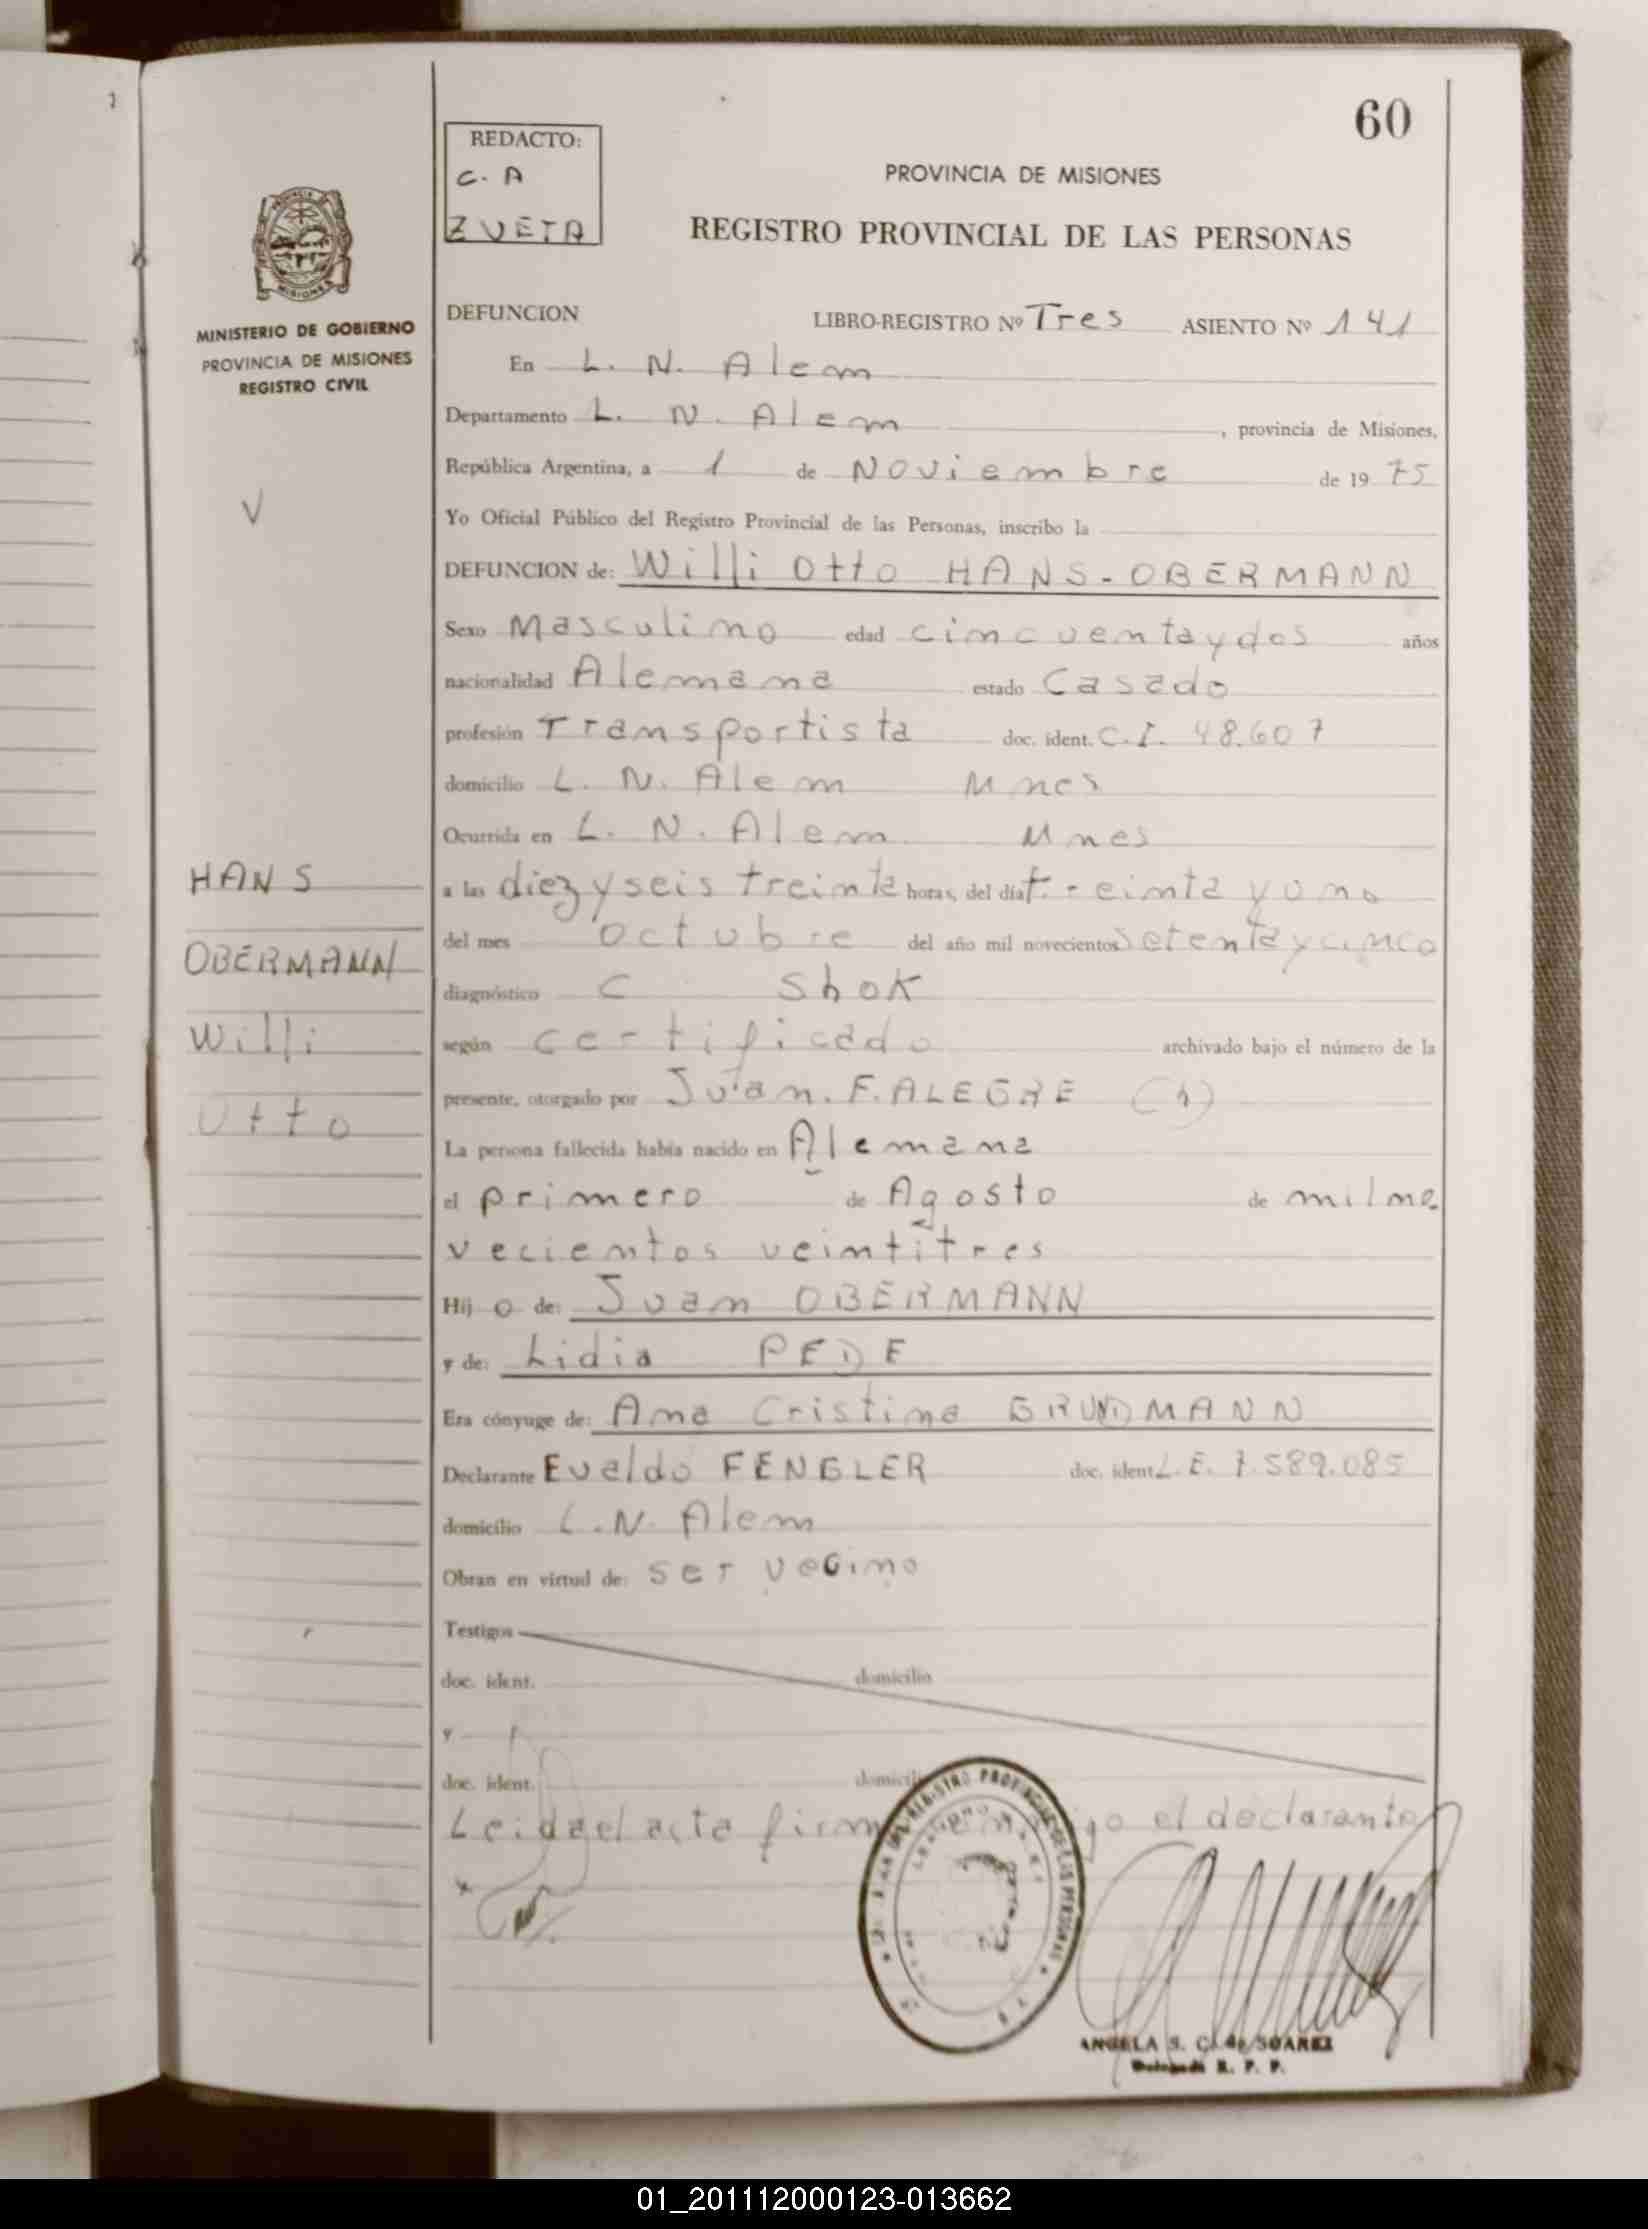 60
REDACTO:
C. A
ZUETA
PROVINCIA DE MISIONES
REGISTRO PROVINCIAL DE LAS PERSONAS
MINISTERIO DE GOBIERNO
PROVINCIA DE MISIONES
REGISTRO CIVIL
V
DEFUNCION LIBRO-REGISTRO Nº Tres ASIENTO Nº 141
En L. N. Alem
Departamento L. N. Alem, provincia de Misiones,
República Argentina, a 1 de Noviembre de 1975
Yo Oficial Público del Registro Provincial de las Personas, inscribo la
DEFUNCION de: Willi Otto HANS-OBERMANN
Sexo Masculino edad cincuentaydos años
nacionalidad Alemana estado Casado
profesión Transportista doc. ident. C.I. 48.607
domicilio L. N. Alem Mnes
Ocurrida en L. N. Alem Mnes
a las diez y seis treinta horas, del día treinta y uno
del mes octubre del año mil novecientos setenta y cinco
diagnóstico C Shok
según certificado archivado bajo el número de la
presente, otorgado por Juan. F. ALEGRE (h)
La persona fallecida había nacido en Alemana
el primero de Agosto de mil no
vecientos veintitres
Hijo de: Juan OBERMANN
y de: Lidia PEDE
Era cónyuge de: Ana Cristina GRUNDMANN
Declarante Evaldo FENGLER doc. ident. L.E. 7.589.085
domicilio L.N. Alem
Obran en virtud de: ser vecino
Testigos
doc. ident. domicilio
y
doc. ident. domicili
Leida el acta firm go el declarante
HANS
OBERMANN
Willi
Otto
ANGELA S. C. de SOAREZ
Delegada R. P. P.
01_201112000123-013662